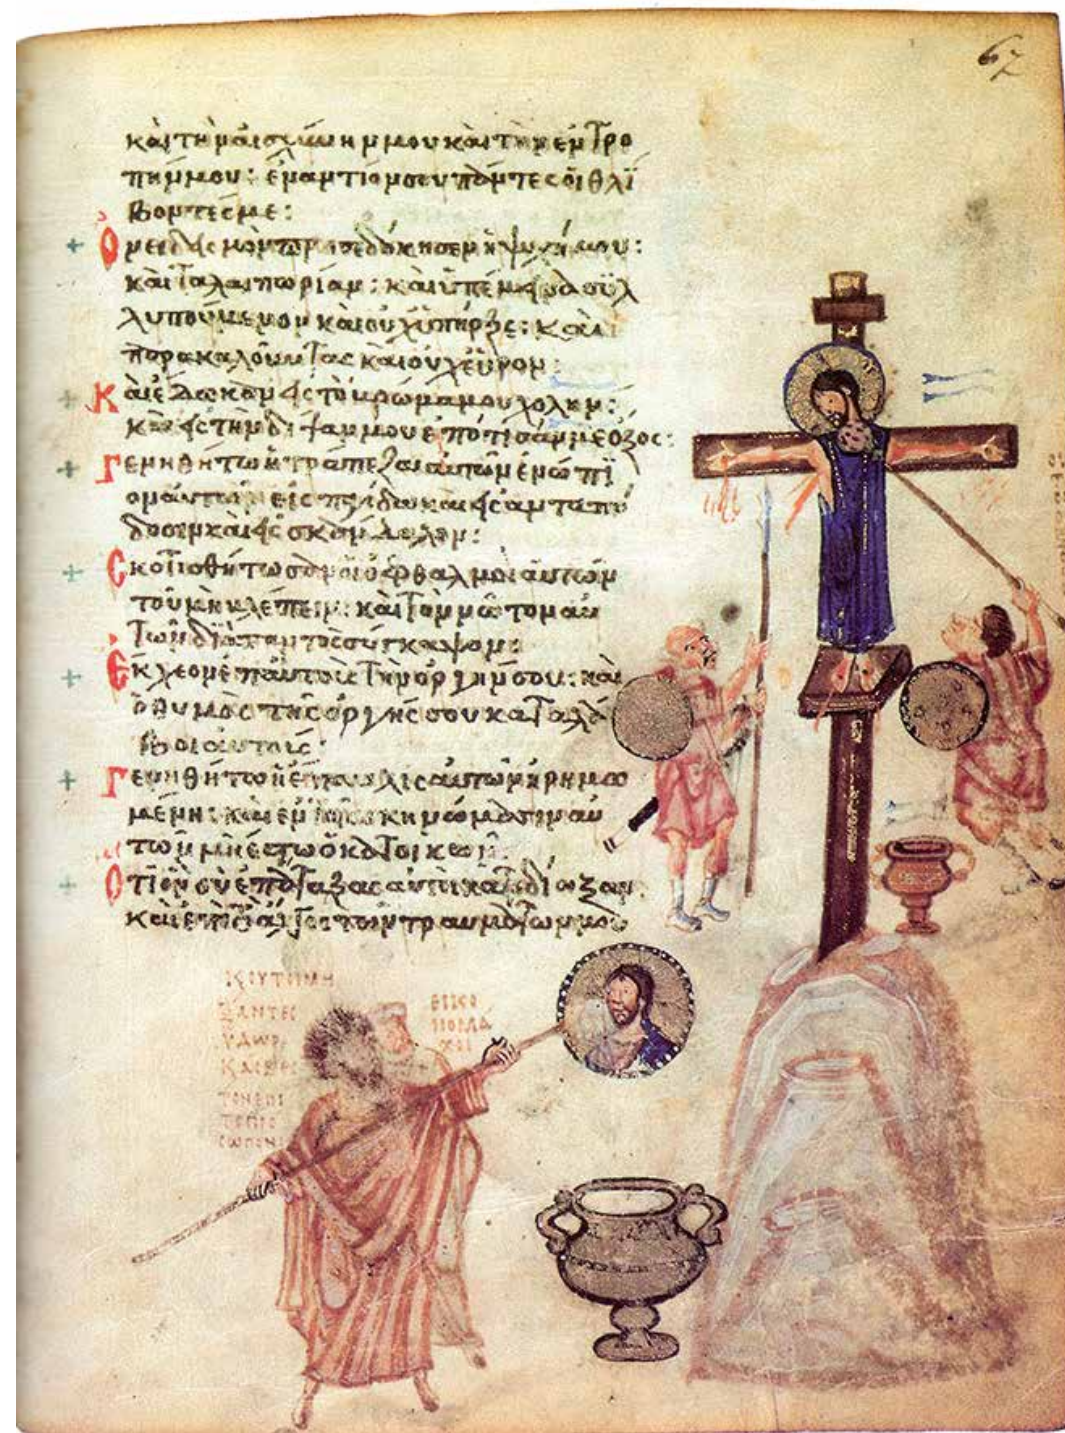 67
καὶ τὴν αἰσχύνην μου καὶ τὴν ἐντρο
πήν μου: ἐναντίον σου πάντες οἱ θλί
βοντές με:
Ὀνειδισμὸν προσεδόκησεν ἡ ψυχή μου:
καὶ ταλαιπωρίαν: καὶ ὑπέμεινα συλ
λυπούμενον καὶ οὐχ ὑπῆρξε: καὶ
παρακαλοῦντας καὶ οὐχ εὗρον:
Καὶ ἔδωκαν εἰς τὸ βρῶμά μου χολήν:
καὶ εἰς τὴν δίψαν μου ἐπότισάν με ὄξος:
Γενηθήτω ἡ τράπεζα αὐτῶν ἐνώπι
ον αὐτῶν εἰς παγίδα καὶ εἰς ἀνταπό
δοσιν καὶ εἰς σκάνδαλον:
Σκοτισθήτωσαν οἱ ὀφθαλμοὶ αὐτῶν
τοῦ μὴ βλέπειν: καὶ τὸν νῶτον αὐ
τῶν διὰ παντὸς σύγκαψον:
Ἔκχεον ἐπ' αὐτοὺς τὴν ὀργήν σου: καὶ
ὁ θυμὸς τῆς ὀργῆς σου καταλά
βοι αὐτούς:
Γενηθήτω ἡ ἔπαυλις αὐτῶν ἠρημω
μένη: καὶ ἐν τοῖς σκηνώμασιν αὐ
τῶν μὴ ἔστω ὁ κατοικῶν:
Ὅτι ὃν σὺ ἐπάταξας αὐτοὶ κατεδίωξαν:
καὶ ἐπὶ τὸ ἄλγος τῶν τραυμάτων μου
Κ ΟΥΤΟΙ ΜΗ
ΞΑΝΤΕΣ
ΥΔΩΡ
ΤΟΝ ΕΠΙ
ΤΟ ΠΡΟ
ΣΩΠΟΝ
ΕΙΚΟ
ΝΟΜΑ
ΧΟΙ